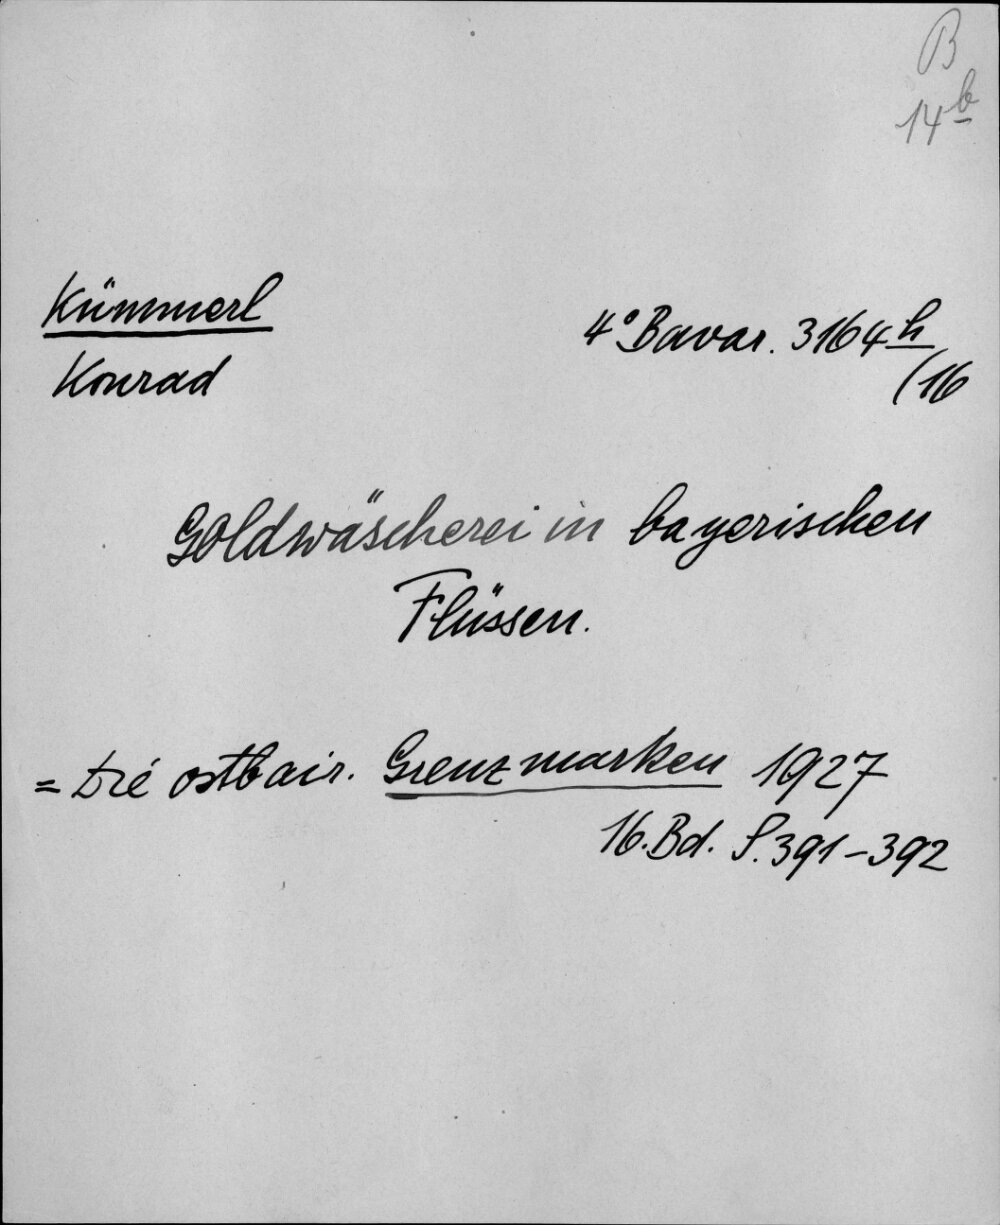 B
14b
Kümmerl
Konrad
4° Bavar. 3164 h
(16
Goldwäscherei in bayerischen
Flüssen.
= Die ostbair. Grenzmarken 1927
16. Bd. S. 391-392